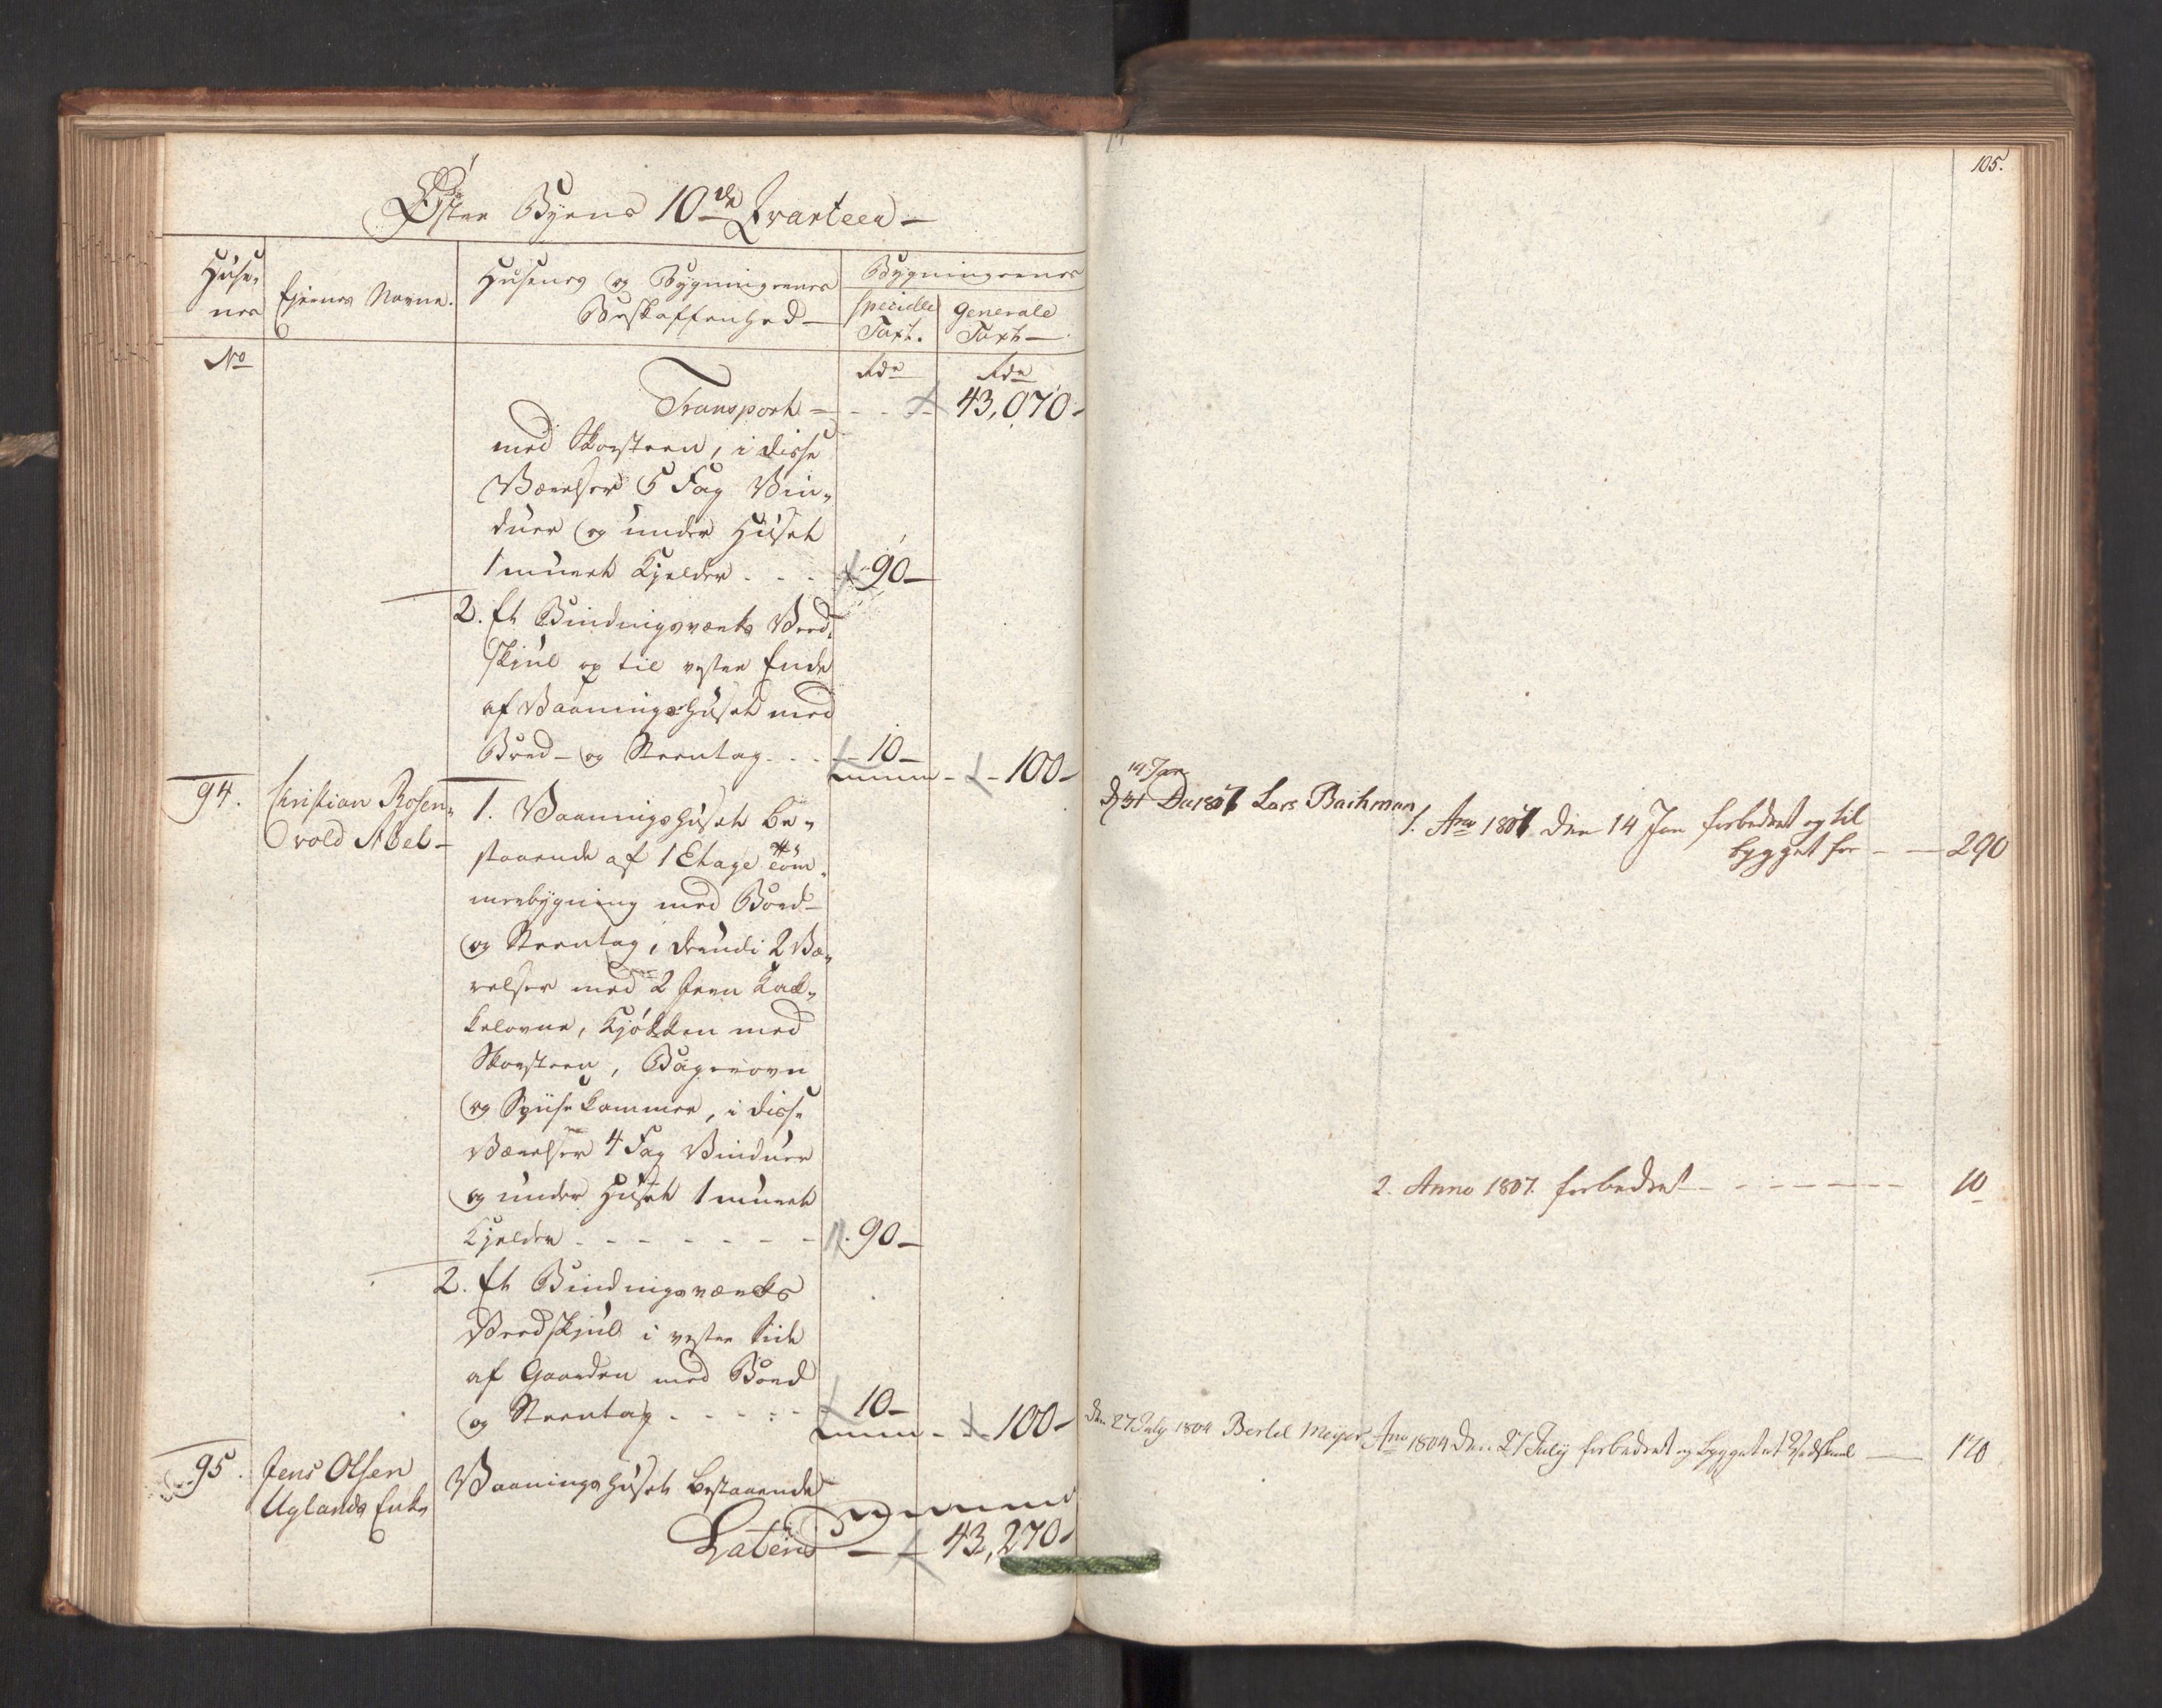 Øster Byens 10de Qvarteer
Huse-
nes
Ejernes Navne.
Husenes og Bygningernes
Beskaffenhed
Bygningernes
specielle
Taxt.
generale
Taxt
No
Rdr
Rdr
Transport 43,070
med Skorsteen, i disse
Værelser 5 Fag Vin-
duer og under Huset
1 muret Kjelder 90
2. Et Bindingsverks Veed-
skjul op til vester Ende
af Vaaningshuset med
Bord- og Steentag 10
100
94.
Christian Rosen-
vold Abel
1. Vaaningshuset be-
staaende af 1 Etage Töm-
merbygning med Bord-
og Steentag, derudi 2 Væ-
relser med 2 Jern Kak-
kelovne, Kjökken med
Skorsteen, Bagerovn
og Spiisekammer, i disse
Værelser 4 Fag Vinduer
og under Huset 1 muret
Kjelder 90
2. Et Bindingsverks
Veedskjul i vester Side
af Gaarden med Bord
og Steentag 10
100
95.
Jens Olsen
Uglands Enke
Vaaningshuset bestaaende
Lateris 43,270
105.
14 Jan
d 31 Da 1807 Lars Bachman
1. Ano 1807 den 14 Jan forbedret og til
bygget for 290
2. Anno 1807. forbedret 10
den 27 July 1804 Bertel Meyer Ano 1804 den 27 July forbedret og bygget et Vedskuul 170